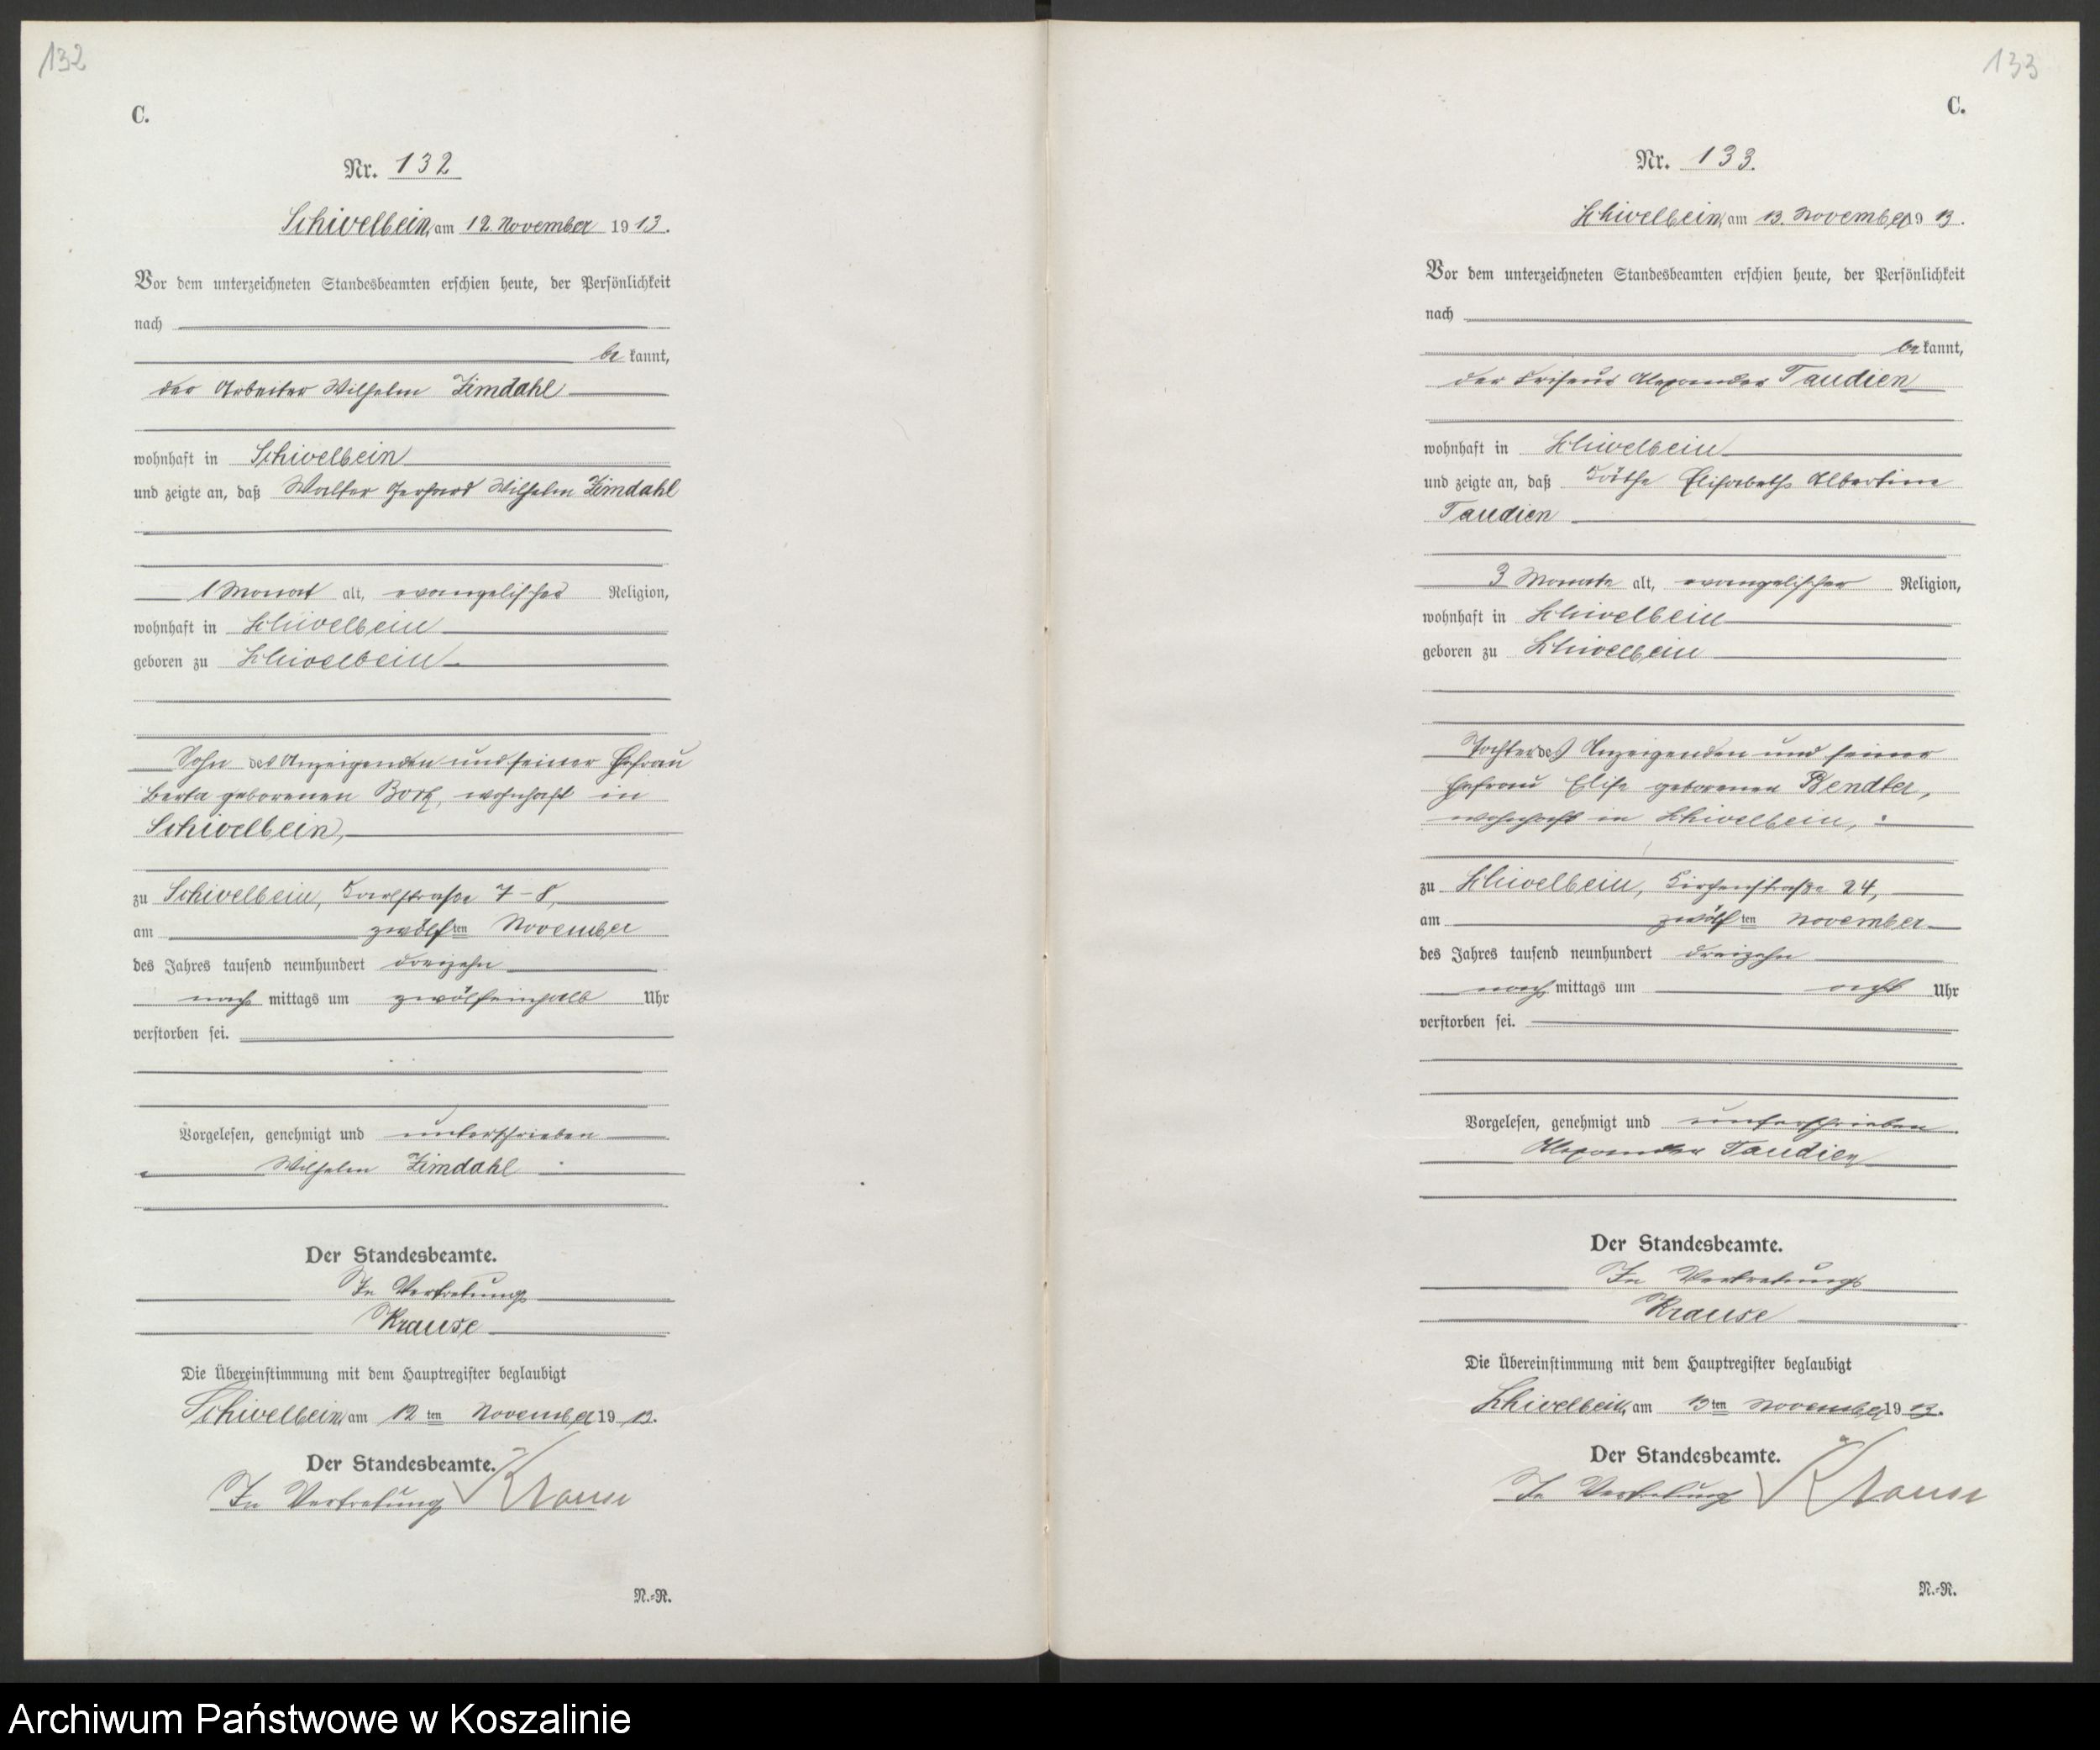 132
C.
Nr. 132
Schivelbein, am 12. November 1913.
Vor dem unterzeichneten Standesbeamten erschien heute, der Persönlichkeit
nach
be kannt,
der Arbeiter Wilhelm Zimdahl
wohnhaft in Schivelbein
und zeigte an, daß Walter Gerhard Wilhelm Zimdahl
1 Monat alt, evangelischer Religion,
wohnhaft in Schivelbein
geboren zu Schivelbein
Sohn des Anzeigenden und seiner Ehefrau
Berta geborenen Bork, wohnhaft in
Schivelbein,
zu Schivelbein, Karlstraße 7-8,
am zwölften November
des Jahres tausend neunhundert dreizehn
nach mittags um zwölfeinhalb Uhr
verstorben sei.
Vorgelesen, genehmigt und unterschrieben
Wilhelm Zimdahl
Der Standesbeamte.
In Vertretung
Krause
Die Übereinstimmung mit dem Hauptregister beglaubigt
Schivelbein, am 12ten November 1913.
Der Standesbeamte.
In Vertretung Krause
N.-R.
133
C.
Nr. 133.
Schivelbein, am 13. November 1913.
Vor dem unterzeichneten Standesbeamten erschien heute, der Persönlichkeit
nach
be kannt,
der Friseur Alexander Taudien
wohnhaft in Schivelbein
und zeigte an, daß Käthe Elisabeth Albertine
Taudien
3 Monate alt, evangelischer Religion,
wohnhaft in Schivelbein
geboren zu Schivelbein
Tochter des Anzeigenden und seiner
Ehefrau Elise geborenen Bendler,
wohnhaft in Schivelbein,
zu Schivelbein, Kirchenstraße 24,
am zwölften November
des Jahres tausend neunhundert dreizehn
nach mittags um acht Uhr
verstorben sei.
Vorgelesen, genehmigt und unterschrieben
Alexander Taudien
Der Standesbeamte.
In Vertretung
Krause
Die Übereinstimmung mit dem Hauptregister beglaubigt
Schivelbein, am 13ten November 1913.
Der Standesbeamte.
In Vertretung Krause
N.-R.
Archiwum Państwowe w Koszalinie